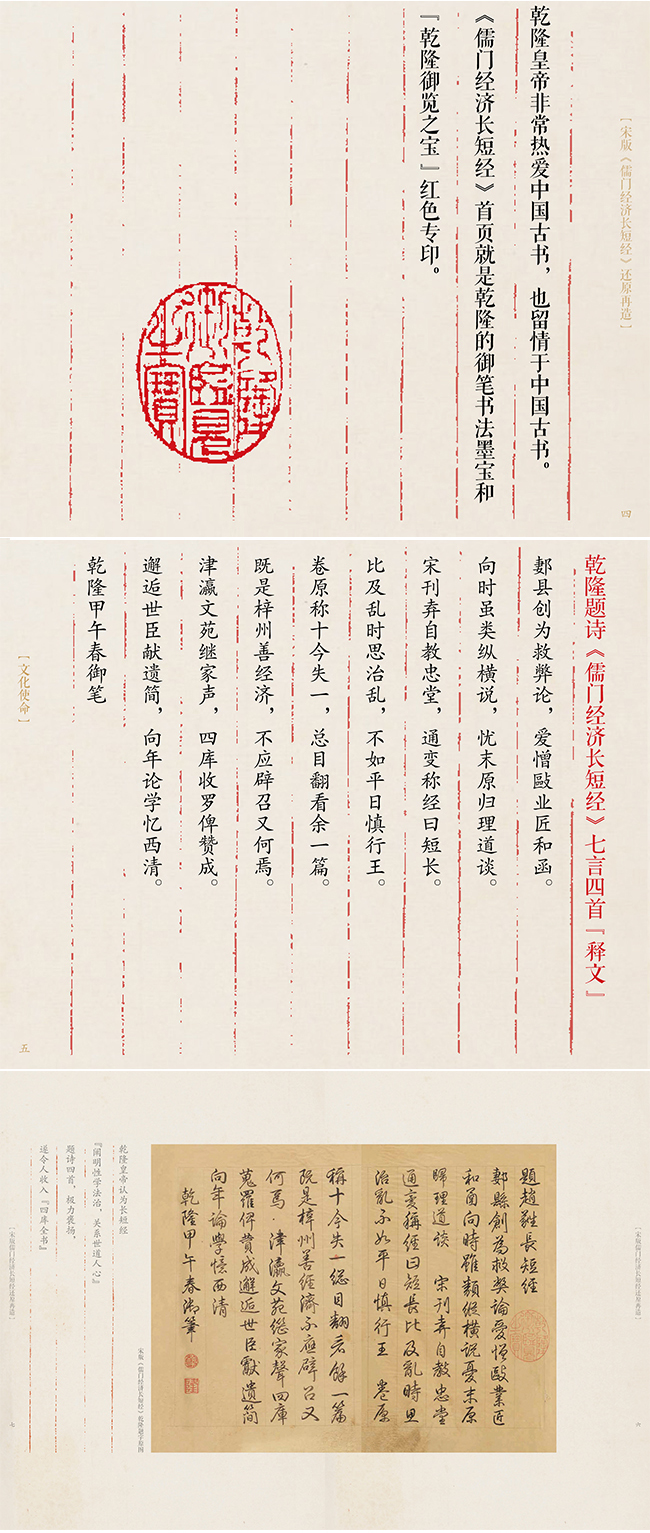 [宋版《儒门经济长短经》还原再造]
乾隆皇帝非常热爱中国古书，也留情于中国古书。
《儒门经济长短经》首页就是乾隆的御笔书法墨宝和
『乾隆御览之宝』红色专印。
乾隆
御览
之宝
四
乾隆题诗《儒门经济长短经》七言四首『释文』
郪县创为救弊论，爱憎敺业匠和函。
向时虽类纵横说，忧末原归理道谈。
宋刊弆自教忠堂，通变称经曰短长。
比及乱时思治乱，不如平日慎行王。
卷原称十今失一，总目翻看余一篇。
既是梓州善经济，不应辟召又何焉。
津瀛文苑继家声，四库收罗俾赞成。
邂逅世臣献遗简，向年论学忆西清。
乾隆甲午春御笔
[文化使命]
五
題趙蕤長短經
郪縣創為救弊論愛憎敺業匠
和函向時雖類縱橫說憂末原
歸理道談 宋刊弆自教忠堂
通變稱經曰短長比及亂時思
治亂不如平日慎行王 卷原
稱十今失一總目翻看餘一篇
既是梓州善經濟不應辟召又
何焉 津瀛文苑繼家聲四庫
蒐羅俾贊成邂逅世臣獻遺簡
向年論學憶西清
乾隆甲午春御筆
宋版《儒门经济长短经》乾隆题字原图
乾隆皇帝认为长短经
『阐明性学法治，关系世道人心』
题诗四首，极力褒扬，
遂令人收入『四库全书』
[宋版儒门经济长短经还原再造]
七
[宋版儒门经济长短经还原再造]
六